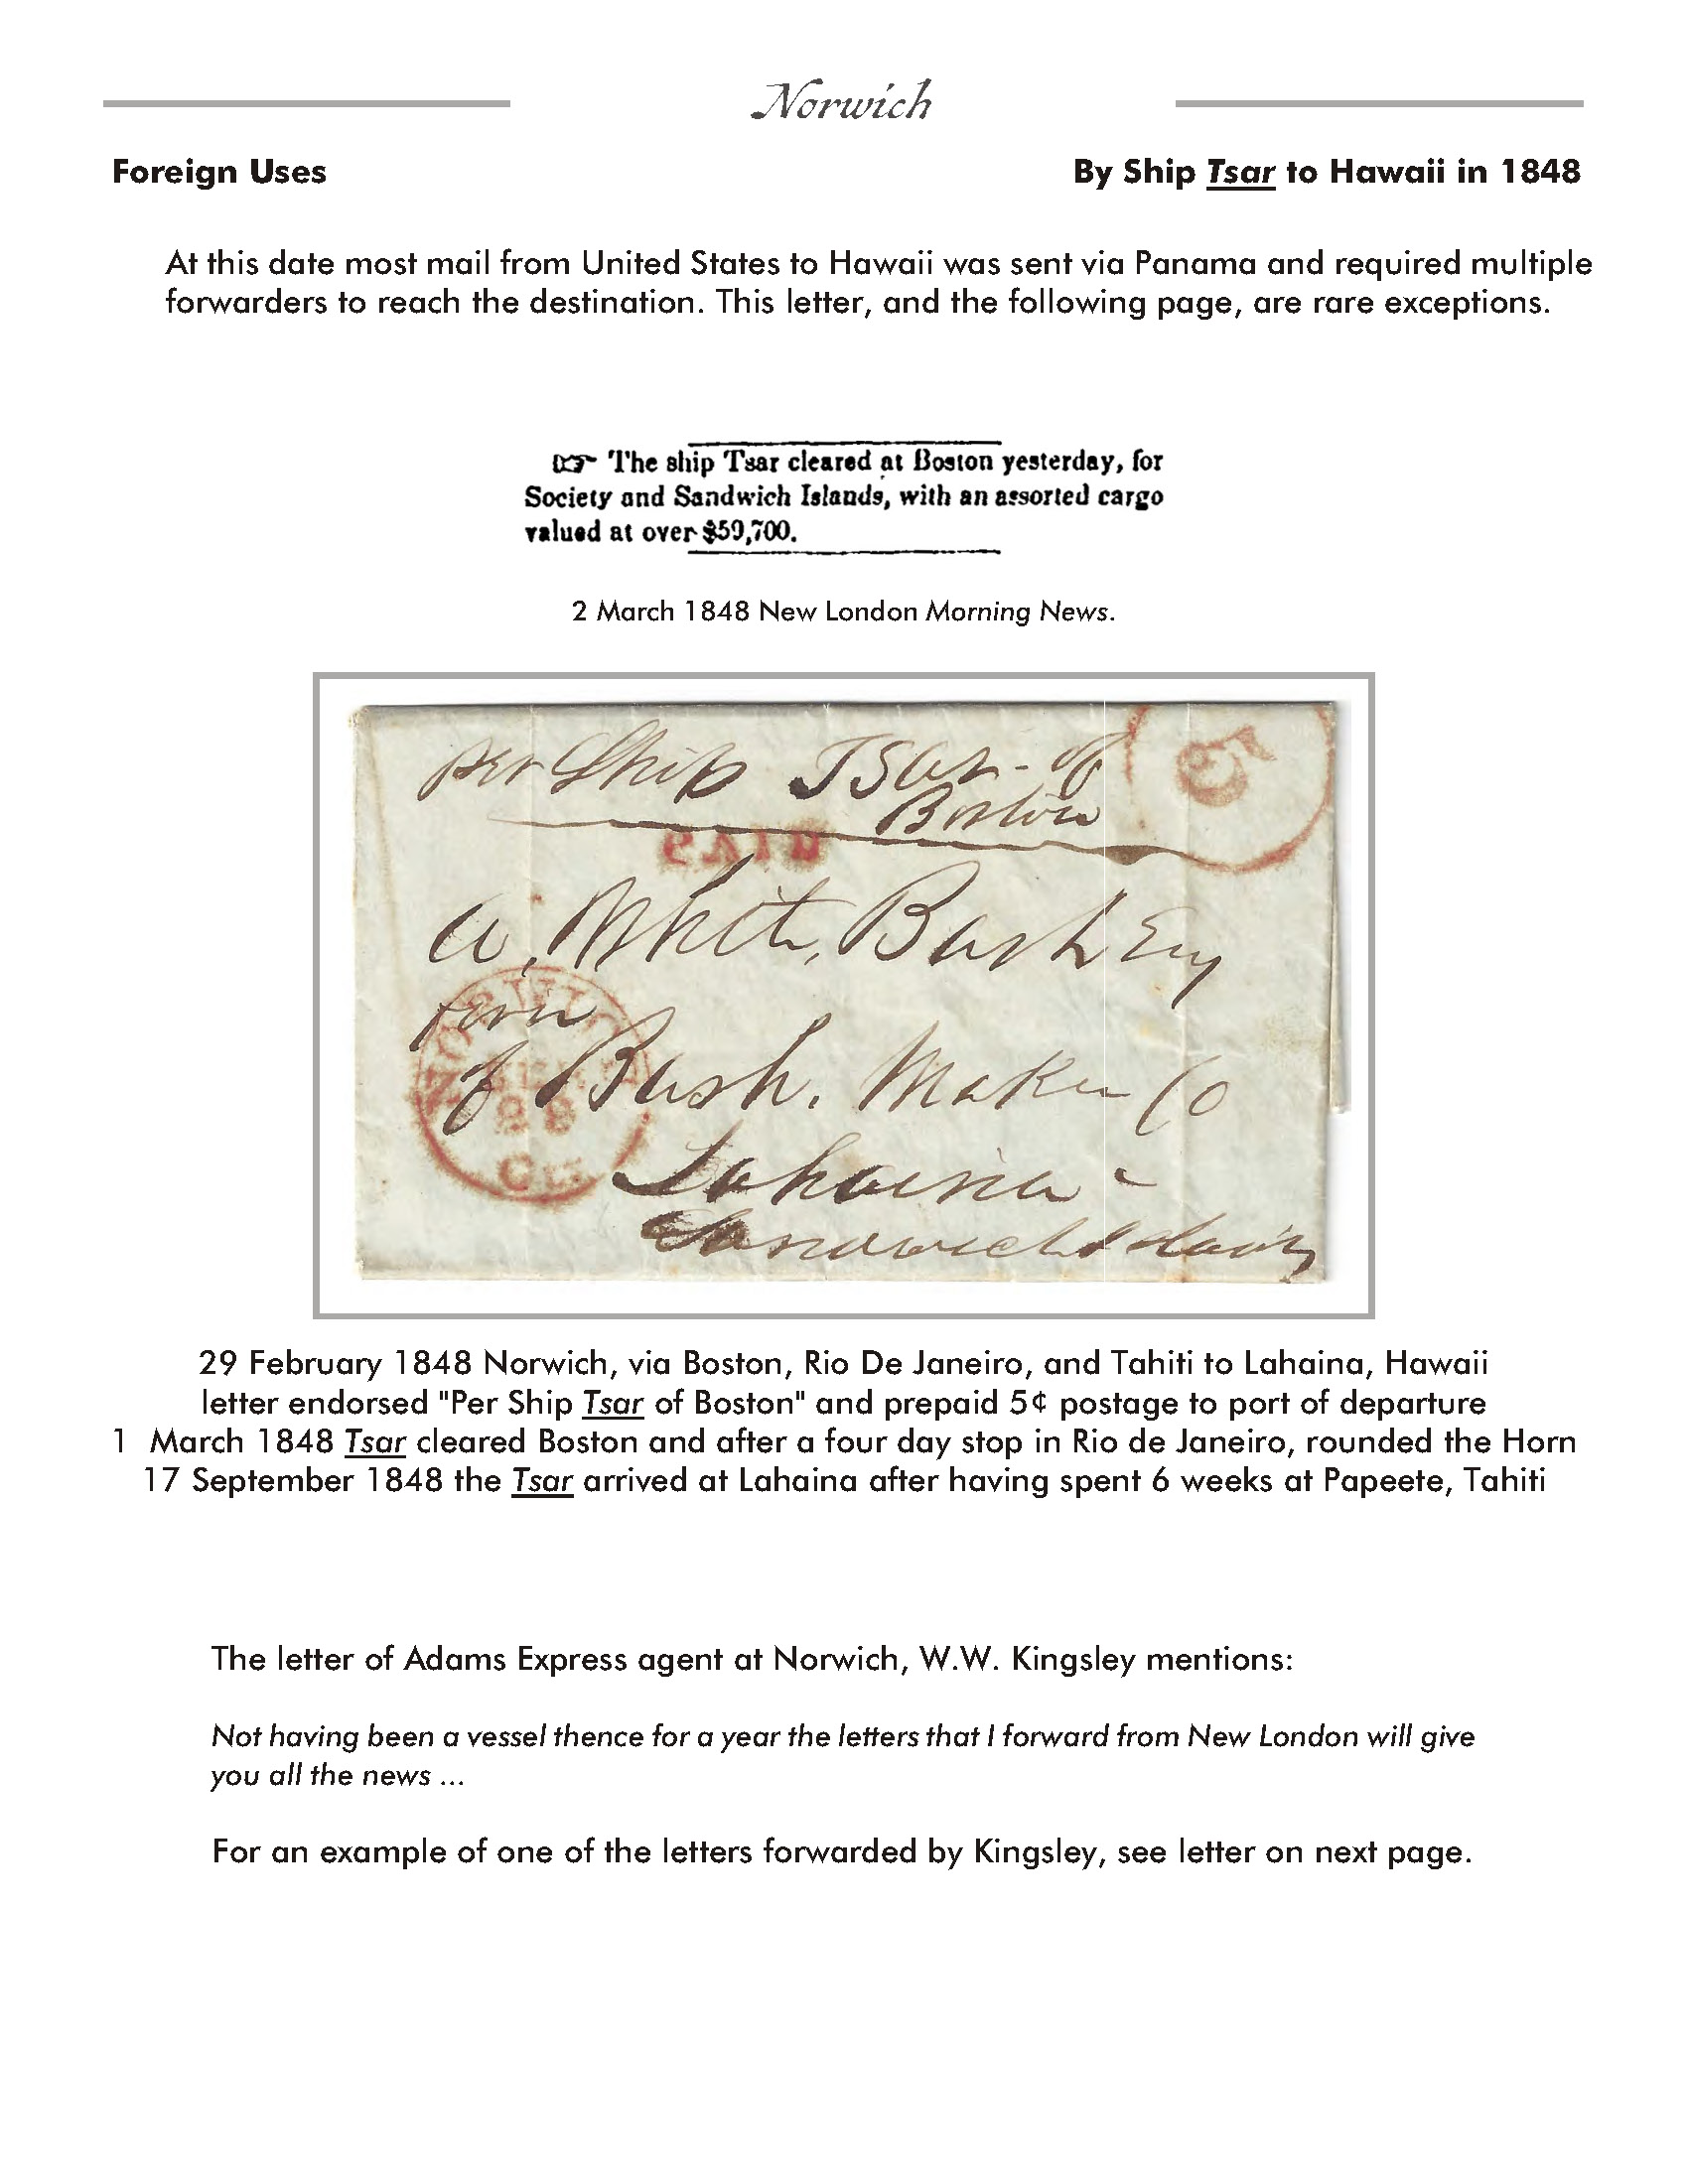 Norwich
Foreign Uses
By Ship Tsar to Hawaii in 1848
At this date most mail from United States to Hawaii was sent via Panama and required multiple
forwarders to reach the destination. This letter, and the following page, are rare exceptions.
☞ The ship Tsar cleared at Boston yesterday, for
Society and Sandwich Islands, with an assorted cargo
valued at over $59,700.
2 March 1848 New London Morning News.
per Ship Tsar - of
Boston
5
PAID
A. White, Bush Esq
firm
of Bush. Makee Co
Lahaina -
Sandwich Islands
NORWICH
FEB
29
Ct.
29 February 1848 Norwich, via Boston, Rio De Janeiro, and Tahiti to Lahaina, Hawaii
letter endorsed "Per Ship Tsar of Boston" and prepaid 5¢ postage to port of departure
1 March 1848 Tsar cleared Boston and after a four day stop in Rio de Janeiro, rounded the Horn
17 September 1848 the Tsar arrived at Lahaina after having spent 6 weeks at Papeete, Tahiti
The letter of Adams Express agent at Norwich, W.W. Kingsley mentions:
Not having been a vessel thence for a year the letters that I forward from New London will give
you all the news ...
For an example of one of the letters forwarded by Kingsley, see letter on next page.